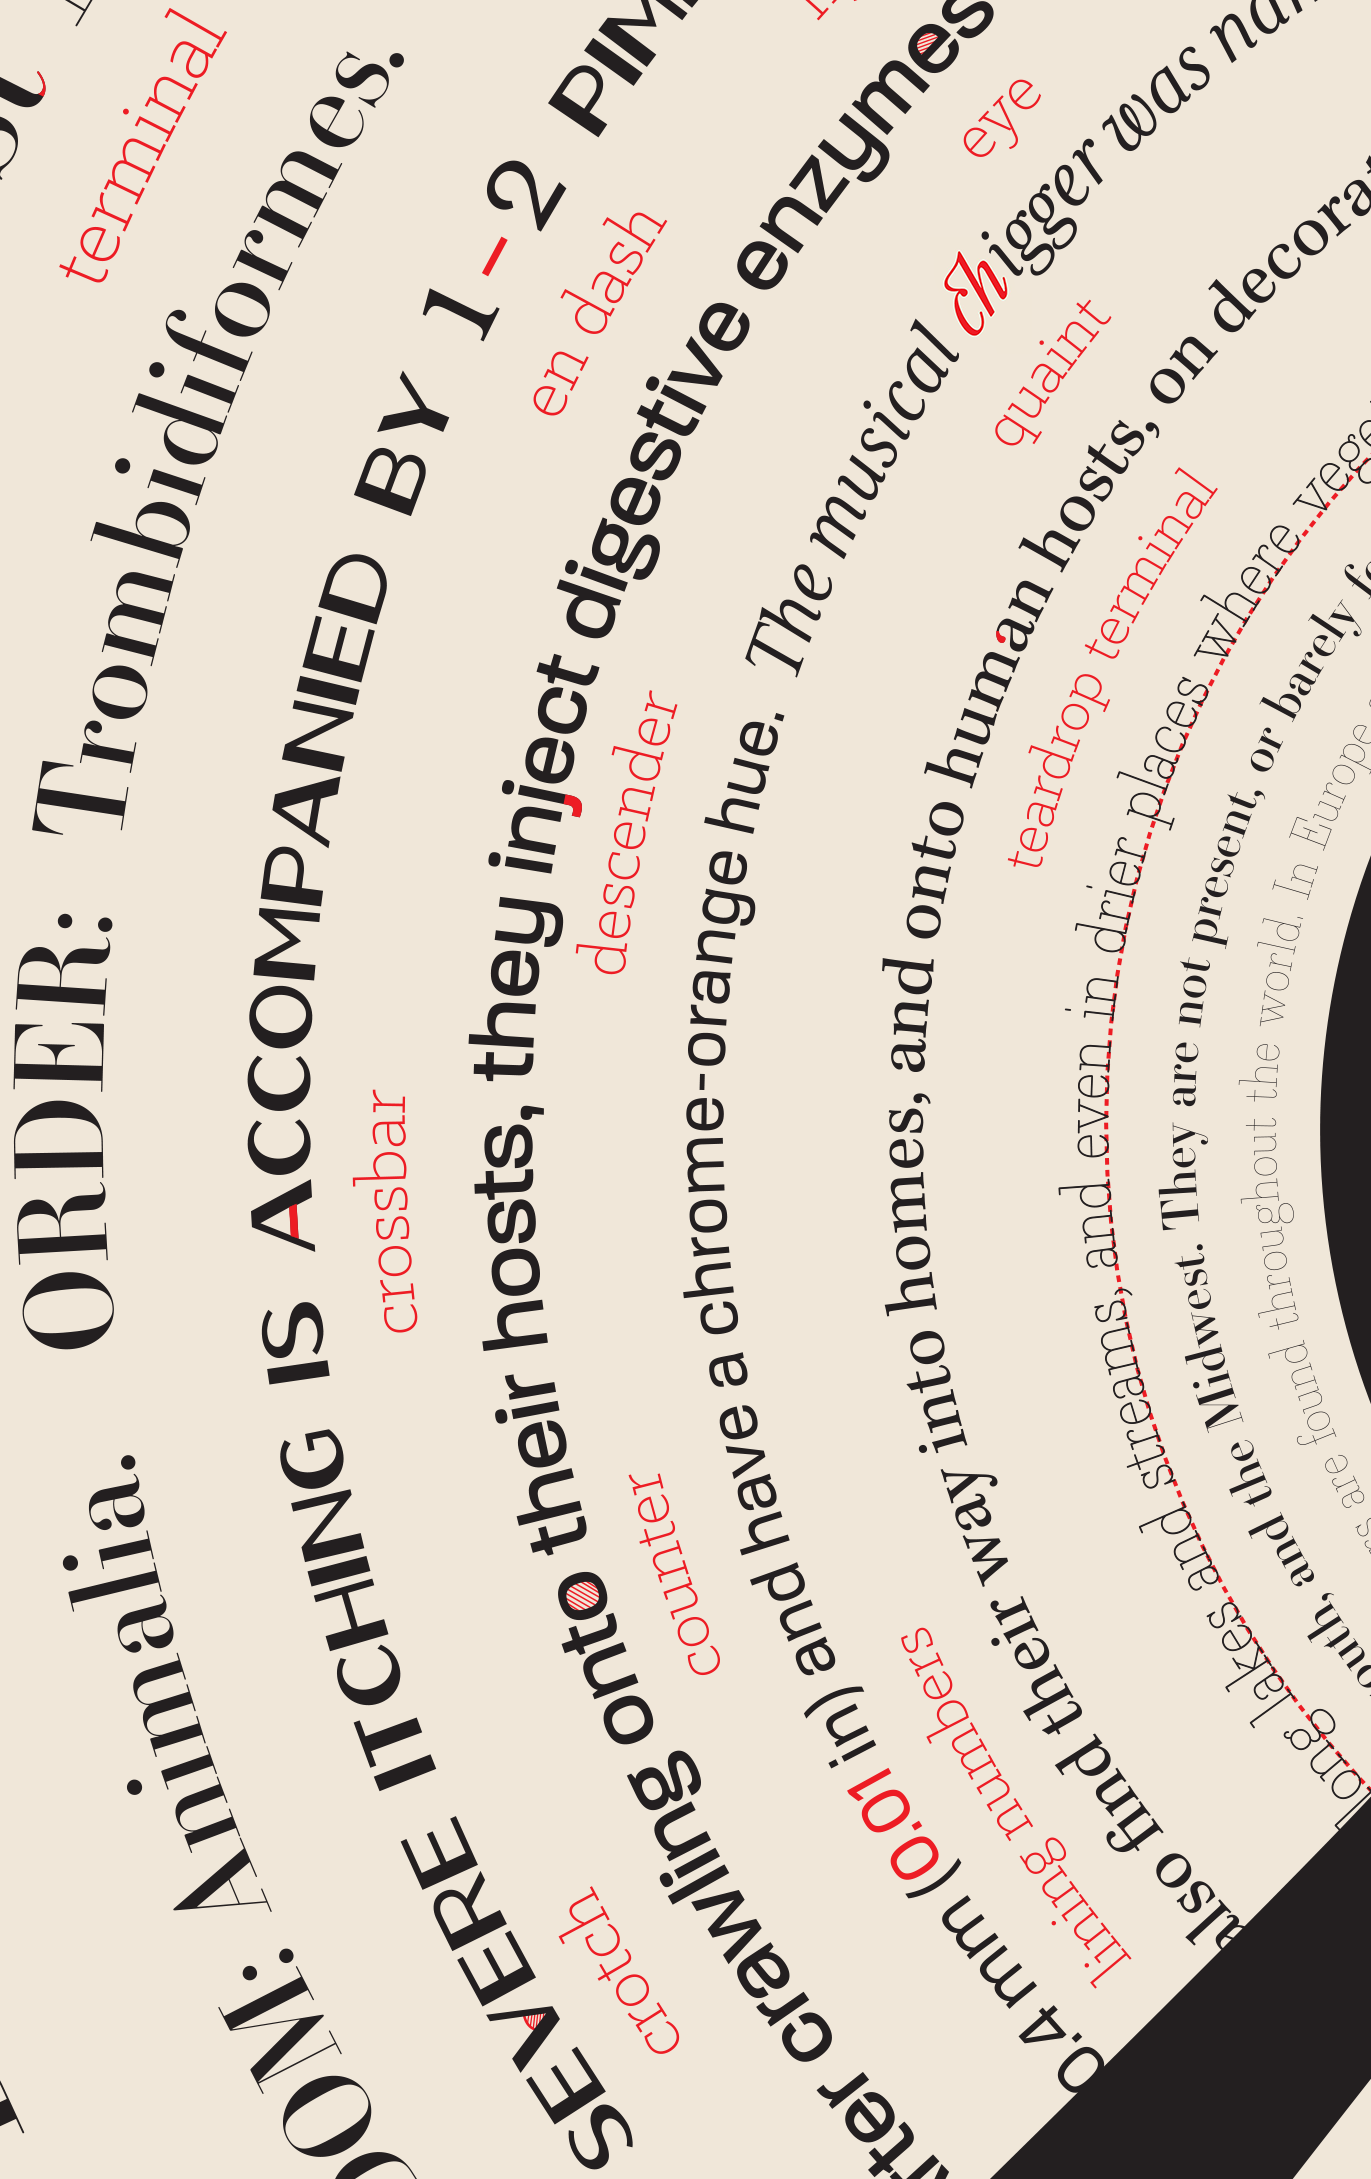 terminal
OM: Animalia. ORDER: Trombidiformes.
SEVERE ITCHING IS ACCOMPANIED BY 1–2 PIM
crotch
crossbar
en dash
after crawling onto their hosts, they inject digestive enzymes
counter
descender
eye
0.4 mm (0.01 in) and have a chrome-orange hue. The musical chigger was nam
lining numbers
quaint
also find their way into homes, and onto human hosts, on decorat
teardrop terminal
long lakes and streams, and even in drier places where vege
outh, and the Midwest. They are not present, or barely f
s are found throughout the world. In Europe